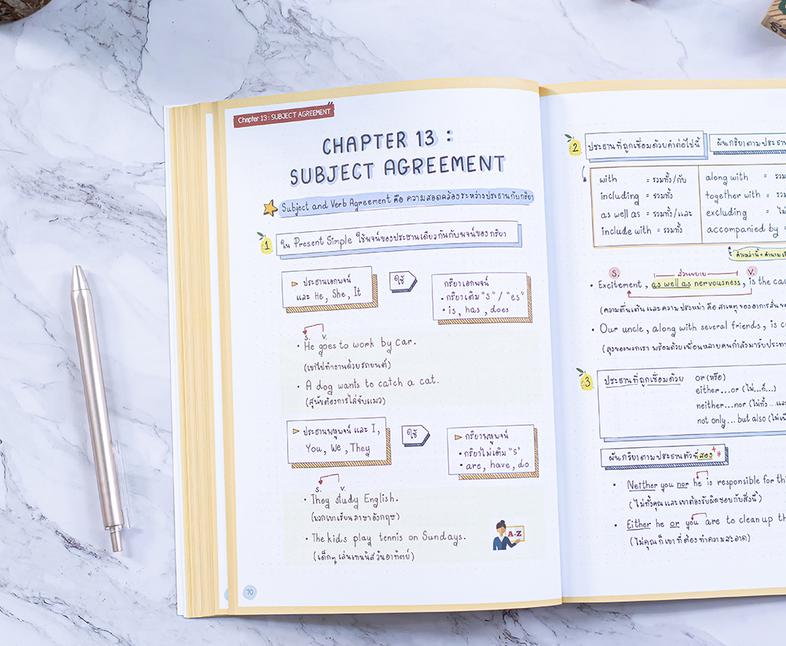 Chapter 13 : SUBJECT AGREEMENT
CHAPTER 13 :
SUBJECT AGREEMENT
Subject and Verb Agreement คือ ความสอดคล้องระหว่างประธานกับกริยา
1 ใน Present Simple ใช้พจน์ของประธานเดียวกันกับพจน์ของกริยา
▸ ประธานเอกพจน์
และ He, She, It
ใช้
กริยาเอกพจน์
• กริยาเติม "s" / "es"
• is, has, does
S. V.
• He goes to work by car.
(เขาไปทำงานด้วยรถยนต์)
• A dog wants to catch a cat.
(สุนัขต้องการไล่จับแมว)
▸ ประธานพหูพจน์ และ I,
You, We, They
ใช้
กริยาพหูพจน์
• กริยาไม่เติม "s"
• are, have, do
S. V.
• They study English.
(พวกเขาเรียนภาษาอังกฤษ)
• The kids play tennis on Sundays.
(เด็กๆ เล่นเทนนิสวันอาทิตย์)
A-Z
70
2 ประธานที่ถูกเชื่อมด้วยคำต่อไปนี้
ผันกริยาตามประธาน
with = รวมทั้ง/กับ
including = รวมทั้ง
as well as = รวมทั้ง/และ
include with = รวมทั้ง
along with =
together with =
excluding =
accompanied by =
S. ส่วนขยาย V.
• Excitement, as well as nervousness, is the
(ความตื่นเต้น และ ความประหม่า คือ สาเหตุ ของ
• Our uncle, along with several friends, is
(ลุงของพวกเรา พร้อมด้วยเพื่อนหลายคนกำลังมารับ
3 ประธานที่ถูกเชื่อมด้วย
or (หรือ)
either...or
neither...nor
not only... but also
ผันกริยาตามประธานตัวที่สอง
• Neither you nor he is responsible for
(ไม่ทั้งคุณและเขาต้องรับผิดชอบกับสิ่งนี้)
• Either he or you are to clean up
(ไม่คุณก็เขาที่ต้องทำความสะอาด)